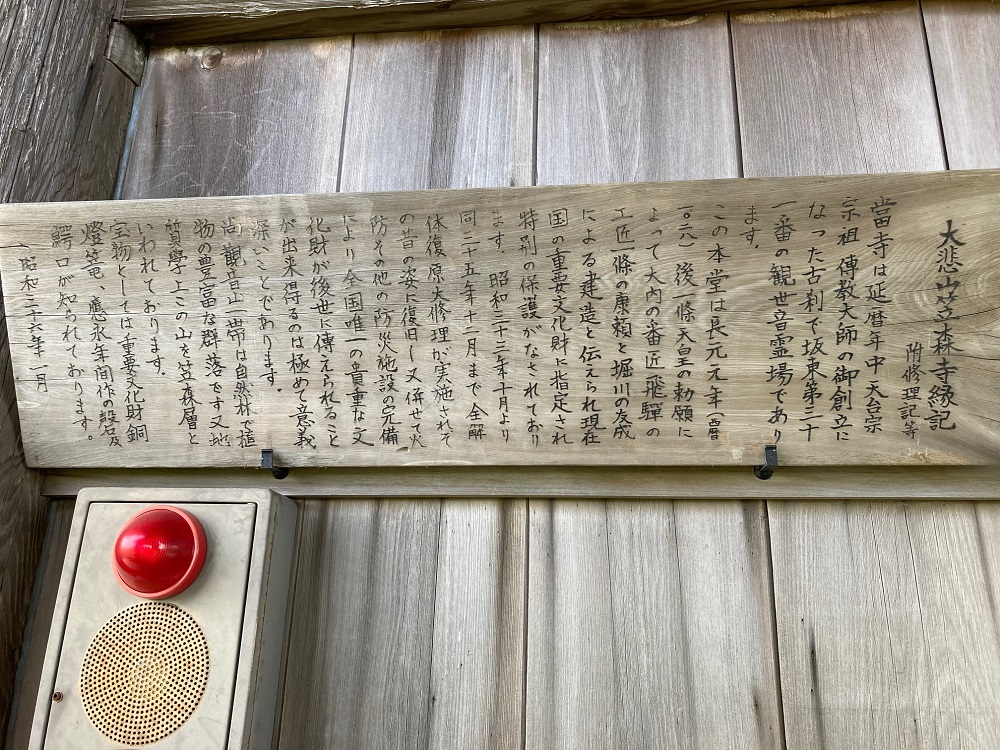 大悲山笠森寺縁記
附修理記等
當寺は延暦年中天台宗
宗祖傳教大師の御創立に
なった古刹で坂東第三十
一番の観世音霊場であり
ます。
この本堂は長元元年(西暦
一〇二八)後一條天皇の勅願に
よって大内の番匠飛騨の
工匠一條の康頼と堀川の友成
による建造と伝えられ現在
国の重要文化財に指定され
特別の保護がなされており
ます。昭和三十二年十月より
同三十五年十二月まで全解
体復原大修理が実施されそ
の昔の姿に復旧し又併せて火
防その他の防災施設の完備
により全国唯一の貴重な文
化財が後世に傳えられること
が出来得るのは極めて意義
深いことであります。
尚観音山一帯は自然林で植
物の豊富な群落です又地
質學上この山を笠森層と
いわれております。
宝物としては重要文化財銅
燈篭、應永年間作の殻石及
鰐口が知られております。
昭和三十六年一月